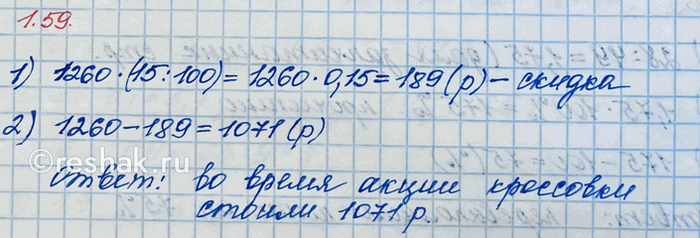 1.59.
1) 1260·(15:100)=1260·0,15=189(р)–скидка
2) 1260–189=1071(р)
Ответ: во время акции кроссовки
стоили 1071 р.
reshak.ru